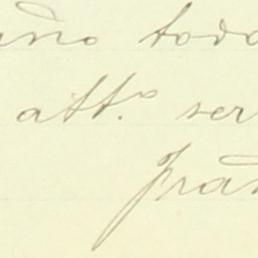 año todo
att.º ser
Fran